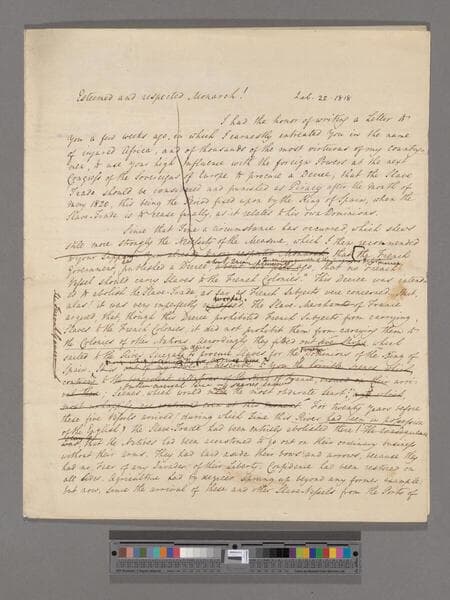 Esteemed and respected Monarch! Feb. 22-1818
I had the honor of writing a Letter to
you a few weeks ago, in which I earnestly entreated You in the name
of injured Africa, and of thousands of the most virtuous of my country-
men, to use your high Influence with the foreign Powers at the next
Congress of the Sovereigns of Europe to procure a Decree, that the Slave
Trade should be considered and punished as Piracy after the month of
May 1820, this being the Period fixed upon by the King of Spain, when the
Slave-Trade is to cease finally, as it relates to his own Dominions.
Since that Time a circumstance has occurred, which shews
still more strongly the Necessity of the Measure, which I then recommended
to your that the French
Government published a Decree that no French
Vessel should carry Slaves to the French Colonies. This Decree was intend-
ed to abolish the Slave Trade, as far as French Subjects were concerned; but,
alas! it was very imperfectly worded. The Slave-merchants of France
argued, that, though this Decree prohibited French Subjects from carrying
Slaves to the French Colonies, it did not prohibit them from carrying them to
the Colonies of other Nations. Accordingly they fitted out five Ships which
sailed to the River to procure Slaves for the Dominions of the King of
Spain.
Scenes, which would the most obdurate heart;
For twenty years before
these five Vessels arrived (during which Time this River had been in possession
of the English) the Slave-Trade had been entirely abolished there! The consequence
was, that the Natives had been accustomed to go out on their ordinary business
without their arms. They had laid aside their bows and arrows, because they
had no Fear of any Invader of their Liberty. Confidence had been restored on
all Sides. Agriculture had by degrees sprung up beyond any former Example;
but now, since the arrival of these and other Slave-Vessels from the Ports of